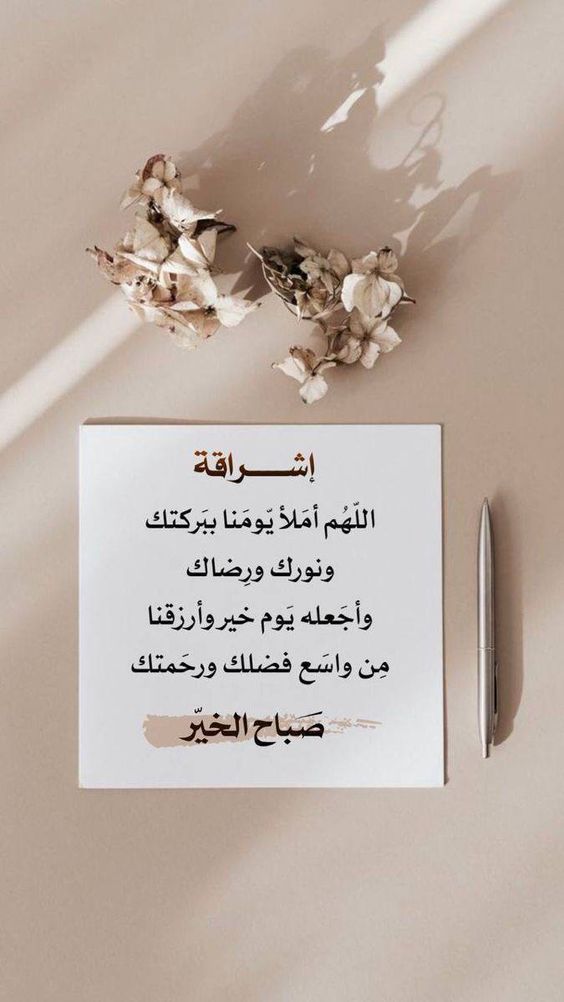 إشـــراقة
اللّهُم أمَلأ يّومَنا ببَركتك
ونورك ورِضاك
وأجَعله يَوم خير وأرزقنا
مِن واسَع فضلك ورحَمتك
صَباح الخيّر